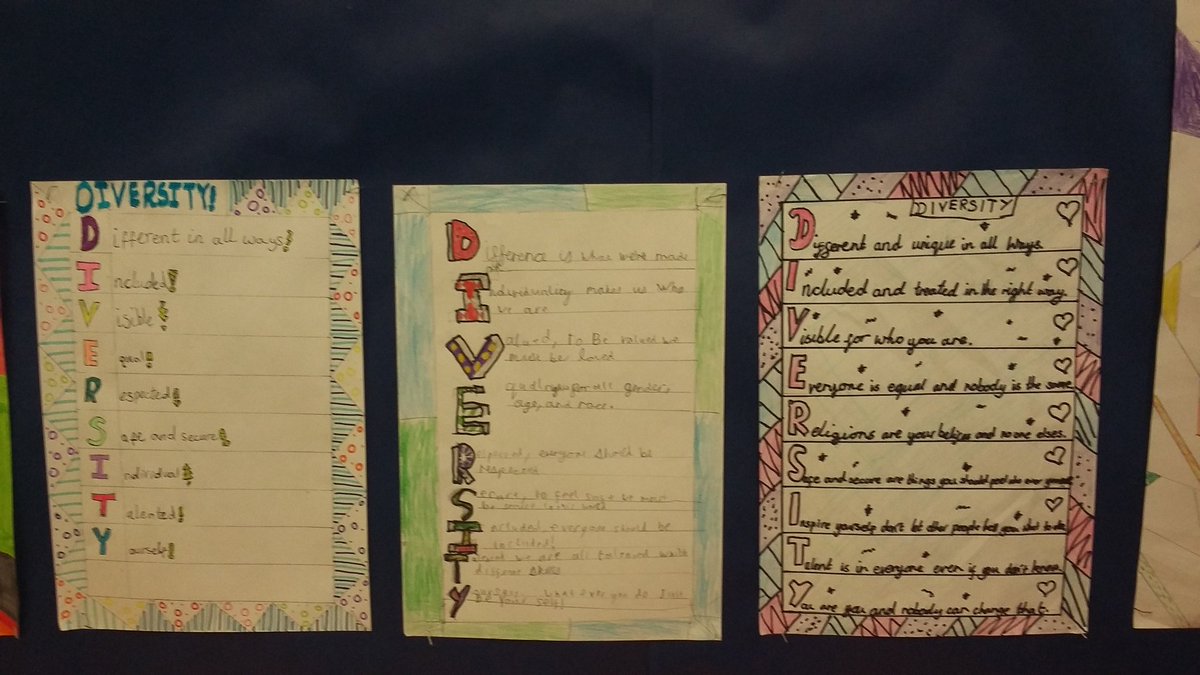 DIVERSITY!
Different in all ways!
Included!
Visible!
Equal!
Respected!
Safe and secure!
Individual!
Talented!
Yourself!
Difference is what we're made
of
Individuality makes us who
we are
Valued, to Be valued we
must be loved
Equal rights for all genders
age, and race.
Respected, everyone should be
respected
Secure, to feel safe we must
be secure
Included everyone should be
included!
we are all talented with
skills
what ever you do
be your self!
DIVERSITY
Different and unique in all ways.
Included and treated in the right way.
Visible for who you are.
Everyone is equal and nobody is the same
Religions are your beliefs and no one elses.
Safe and secure are things you should feel
Inspire yourself don't let other people tell you what to do.
Talent is in everyone even if you don't know
You are you and nobody can change that.